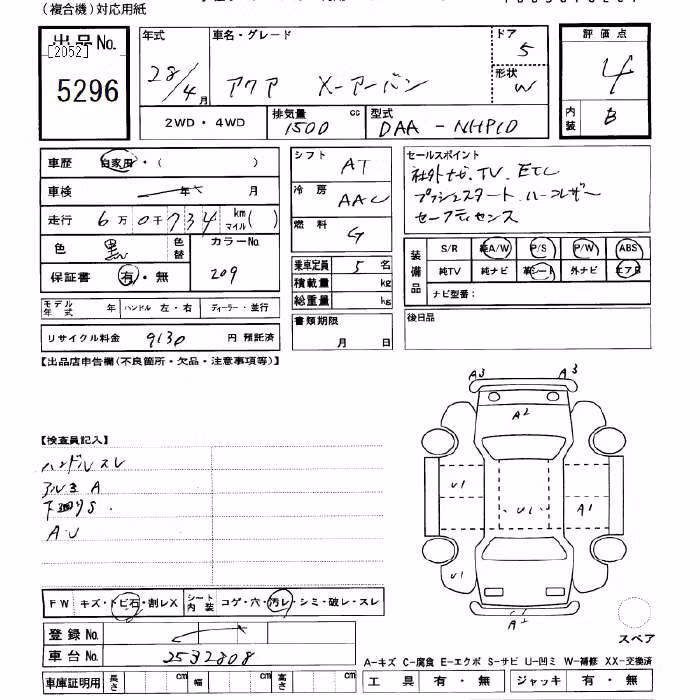 (複合機)対応用紙
出品No.
[2052]
5296
年式
28/4月
車名・グレード
アクア X-アーバン
ドア
5
形状
W
評価点
4
内装
B
2WD・4WD
排気量
1500 cc
型式
DAA-NHP10
車歴 自家用・( )
車検 年 月
走行 6万0千734 km マイル( )
色 黒 色替 カラーNo. 209
保証書 有・無
モデル年式 年 ハンドル 左・右 ディーラー・並行
リサイクル料金 9130 円 預託済
シフト AT
冷房 AAC
燃料 G
乗車定員 5 名
積載量 kg
総重量 kg
書類期限
月 日
セールスポイント
社外ナビ、TV、ETC
プッシュスタート、ハーフレザー
セーフティセンス
装備品
S/R 純A/W P/S P/W ABS
純TV 純ナビ 革シート 外ナビ エアB
ナビ型番:
後日品
【出品店申告欄(不良箇所・欠品・注意事項等)】
【検査員記入】
ハンドルスレ
アルミA
下廻りS
A・U
A3 A3
A2
U1 U1 A1
U1
FW キズ・トビ石・割レX シート内装 コゲ・穴・汚レ・シミ・破レ・スレ
登録No.
車台No. 2532808
車庫証明用 長さ cm 幅 cm 高さ cm
スペア
A-キズ C-腐食 E-エクボ S-サビ U-凹ミ W-補修 XX-交換済
工具 有・無 ジャッキ 有・無